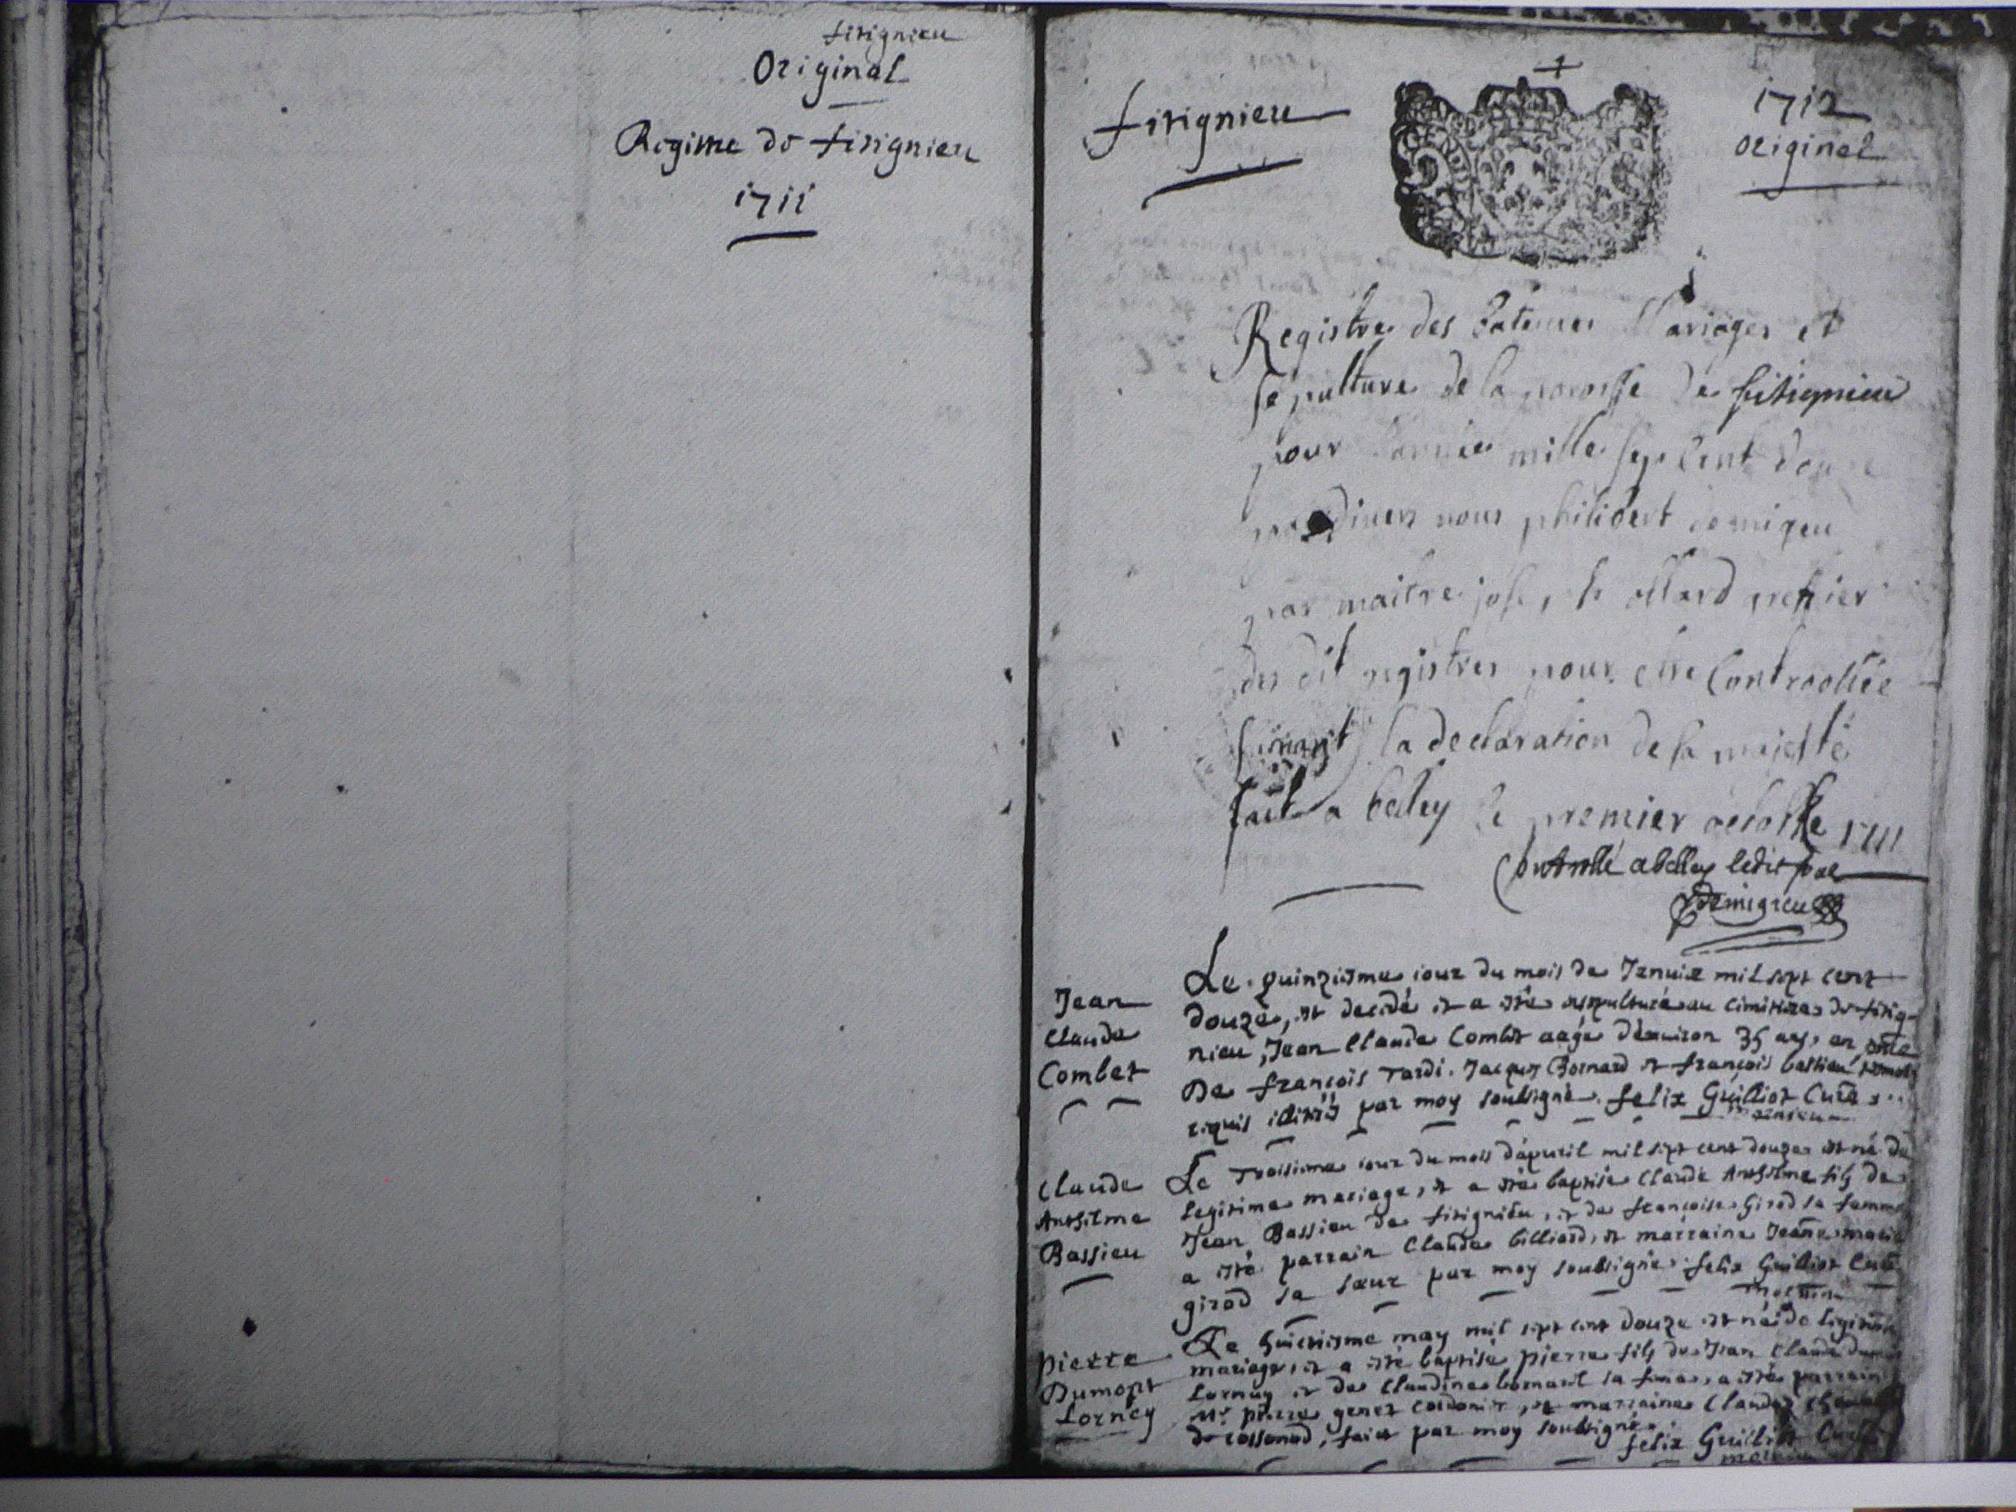 fitignieu
Original
Regitre de fitignieu
1711
fitignieu
1712
original
Registre des batemes Mariages et
sepulture de la paroisse de fitignieu
pour l'année mille sept cent douze
nous philibert demigieu
par maitre joseph ollard greffier
des dit registres pour etre Controollée
suivant la declaration de sa majesté
fait a belley le premier octobre 1711
Controllé a belley ledit jour
Demigieu
Jean
Claude
Combet
Le quinziesme iour du mois de Januier mil sept cent
douze, est decedé et a esté ensepulturé au cimitiere de fitig-
nieu, Jean Claude Combet aagé d'enuiron 35 ans, en
De françois Tardi. Jacques Bornard et françois bassieu
requis illitérés par moy soubsigné. felix Guilliot Curé
Claude
Anthelme
Bassieu
Le Troisieme iour du mois d'apuril mil sept cent douze est né de
legitime mariage, et a esté baptisé Claude Anthelme fils de
Jean Bassieu de fitignieu, et de françoise Girod sa femme
a esté parrain Claude billiard, et marraine Jeanne marie
girod sa sœur par moy soubsigné. felix Guilliot Curé
pierre
Dumont
Lorney
Le huictiesme may mil sept cent douze est né de legitime
mariage, et a esté baptisé pierre fils de Jean Claude
Lornay et de Claudine bornard sa feme, a esté parrain
Mr. pierre genet, et marraine Claudine
de rossonod, faict par moy soubsigné.
felix Guilliot Curé